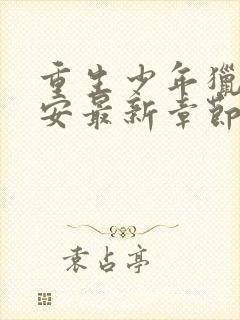 重生少年獵
安最新章節
袁占亭